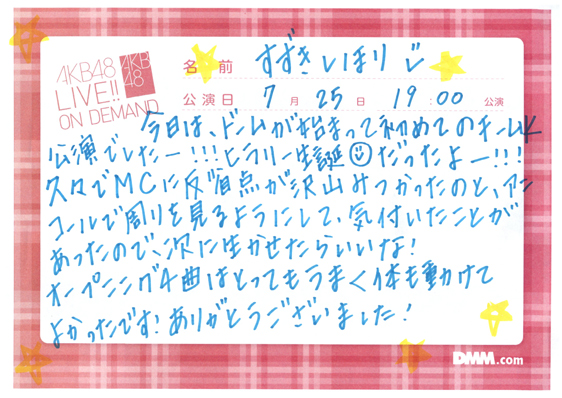 AKB48
LIVE!!
ON DEMAND
AKB
48
名前 すずきしほり
公演日 7月25日 19:00 公演
今日は、ドームが始まって初めてのチームK
公演でしたー!!!ヒラリー生誕だったよー!!!
久々でMCに反省点が沢山みつかったのと、アン
コールで周りを見るようにして、気付いたことが
あったので、次に生かせたらいいな!
オープニング4曲はとってもうまく体も動かけて
よかったです!ありがとうございました!
DMM.com